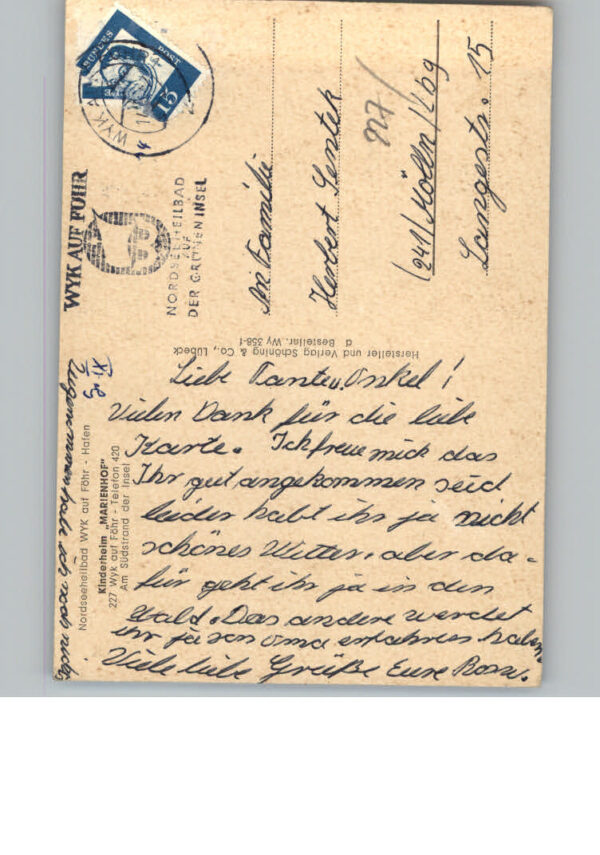 BUNDES
POST
15
WYK AUF FÖHR
NORDSEEHEILBAD
AUF
DER GRÜNEN INSEL
An Familie
Herbert Sentek
927/
(241) Mölln / Lbg
Langestr. 15
Hersteller und Verlag Schöning & Co., Lübeck
a Bestellnr. Wy 358-f
Nordseeheilbad WYK auf Föhr - Hafen
Kinderheim „MARIENHOF"
227 Wyk auf Föhr - Telefon 420
Am Südstrand der Insel
Liebe Tante u. Onkel!
Vielen Dank für die liebe
Karte. Ich freue mich das
Ihr gut angekommen seid
leider habt ihr ja nicht
schönes Wetter. aber da-
für geht ihr ja in den
Wald. Das andere werdet
ihr ja von Oma erfahren haben.
Viele liebe Grüße Eure
zugenommen habe ich noch nicht